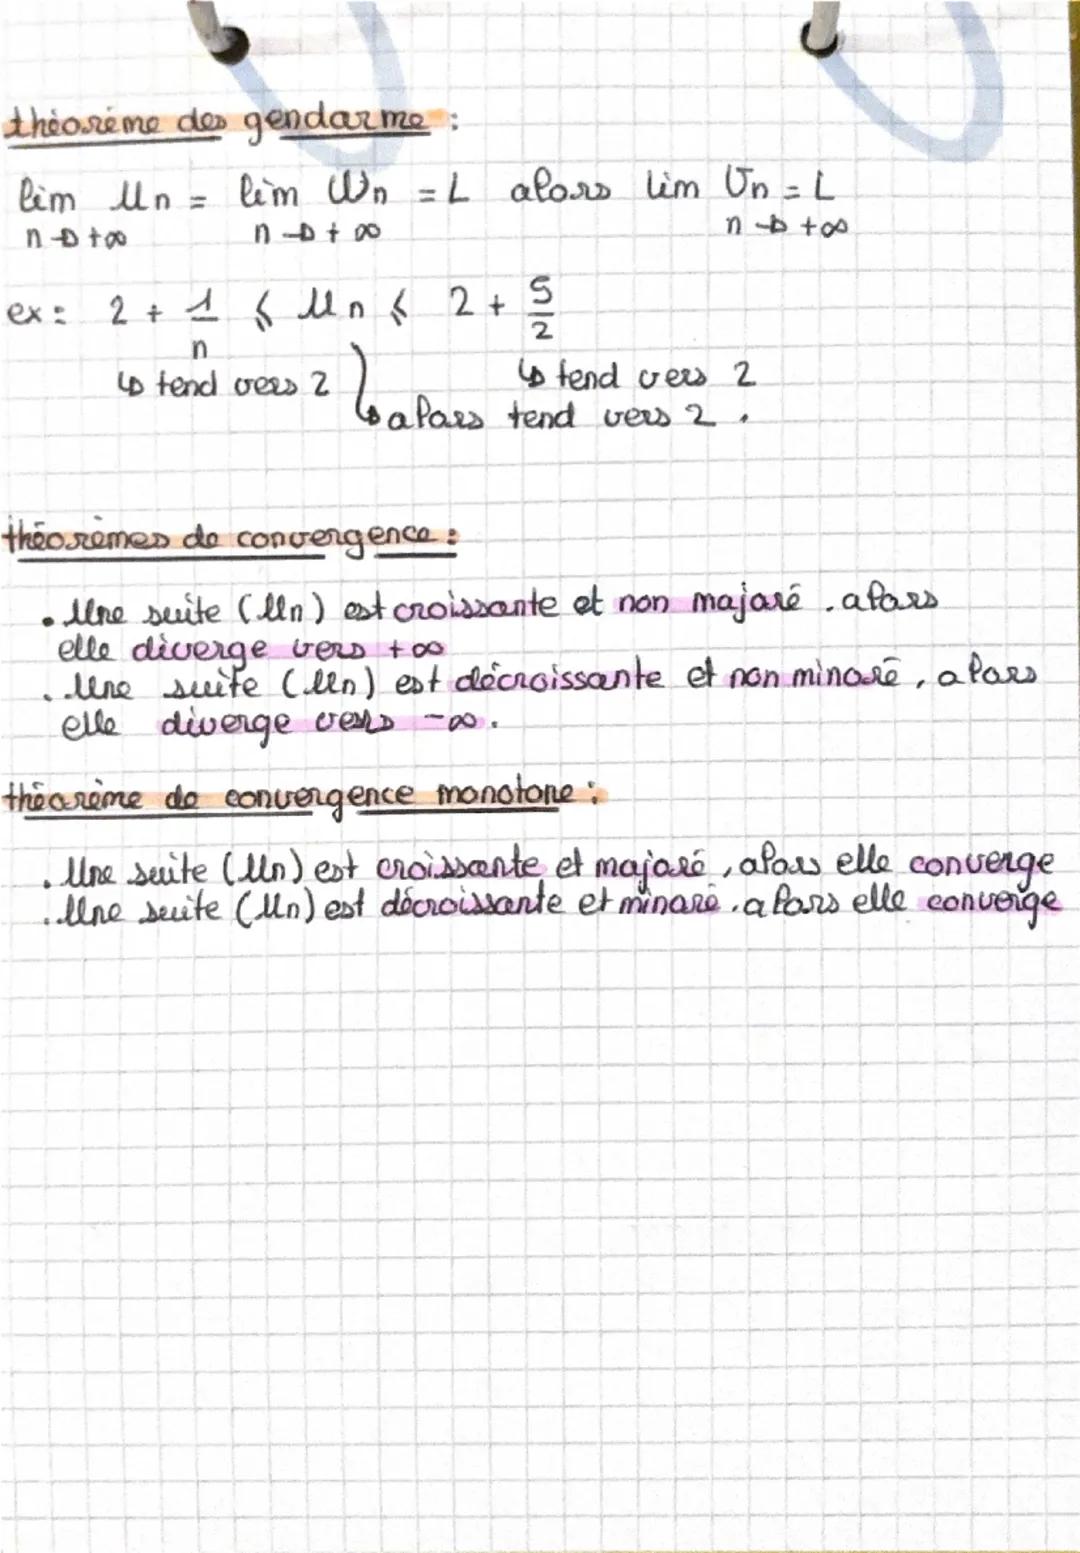 théorème des gendarme :
lim Un = lim Wn = L alors lim Vn = L
n→+∞ n→+∞ n→+∞
ex : 2 + 1/n ⩽ Un ⩽ 2 + 5/2
↳ tend vers 2 ↳ tend vers 2
↳ alors tend vers 2.
théorèmes de convergence :
• Une suite (Un) est croissante et non majoré . alors
elle diverge vers +∞
. Une suite (Un) est décroissante et non minoré, alors
elle diverge vers -∞.
théorème de convergence monotone :
. Une suite (Un) est croissante et majoré, alors elle converge
. Une suite (Un) est décroissante et minoré . alors elle converge